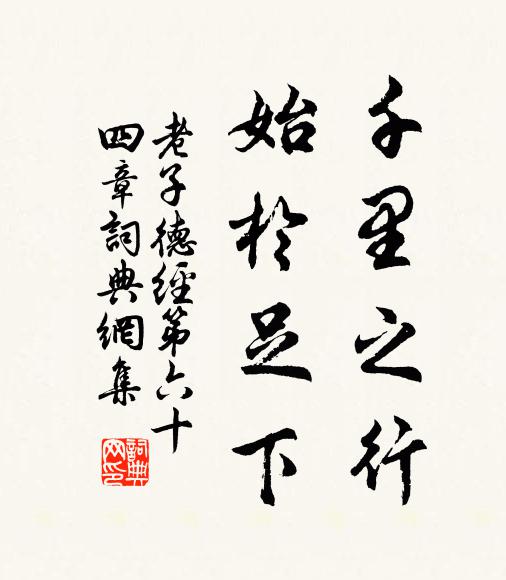 千里之行
始於足下
老子德經第六十
四章詞典網集
詞典
网印